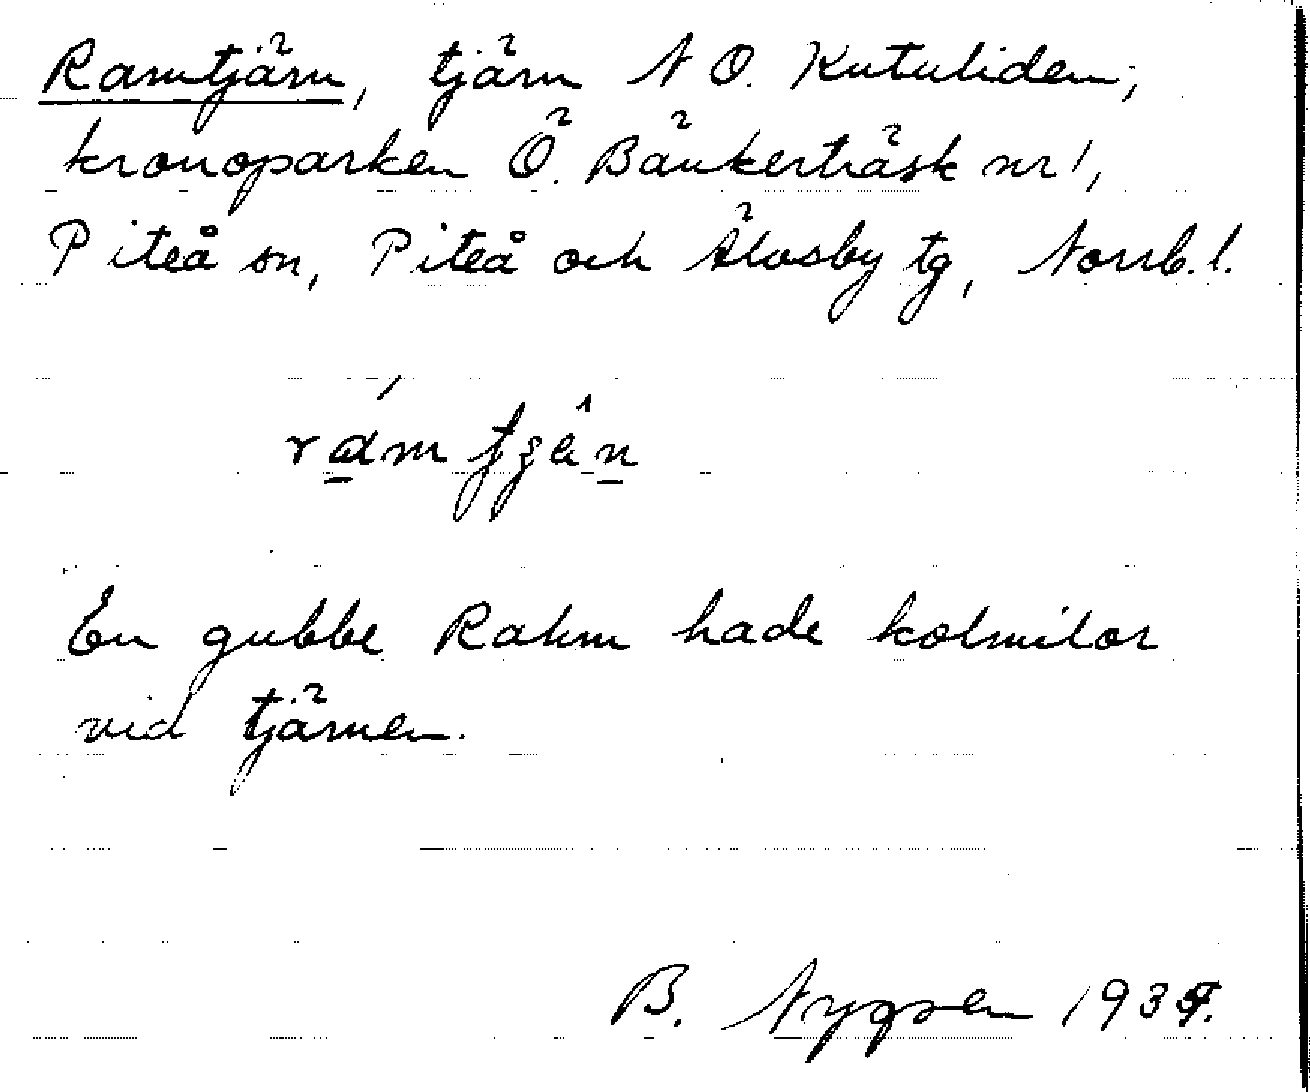 Ramtjärn, tjärn N O. Kutuliden,
kronoparken Ö. Bänkerträsk nr 1,
Piteå sn, Piteå och Älvsby tg, Norrb. l.
En gubbe Rahm hade kolmilor
vid tjärnen.
B. Nygren